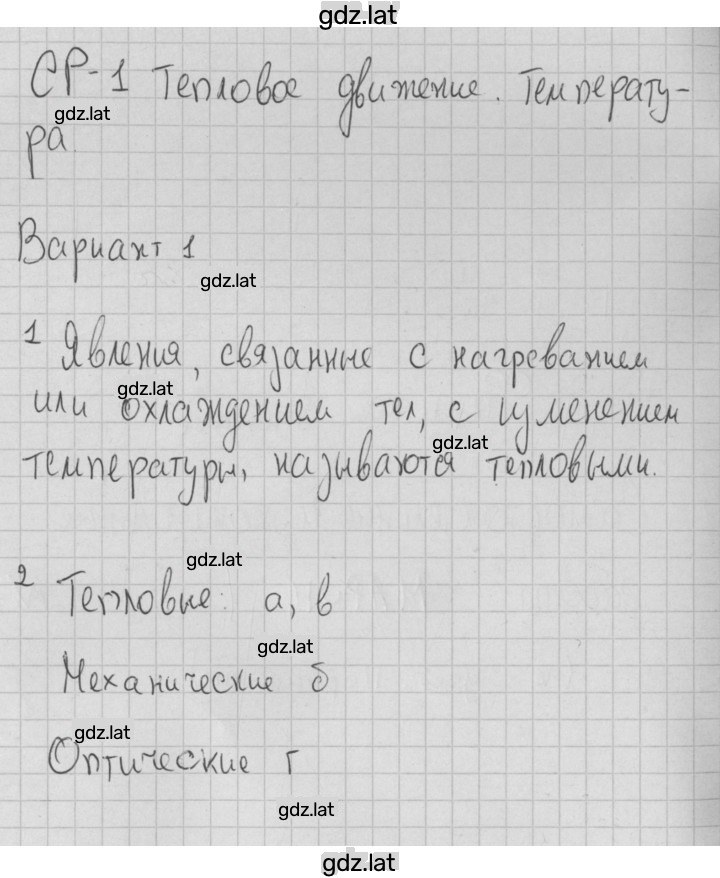 gdz.lat
СР-1 Тепловое движение. Температу-
gdz.lat
ра.
Вариант 1
gdz.lat
1 Явления, связанные с нагреванием
gdz.lat
или охлаждением тел, с изменением
gdz.lat
температуры, называются тепловыми.
gdz.lat
2 Тепловые: а, в
gdz.lat
Механические б
gdz.lat
Оптические г
gdz.lat
gdz.lat